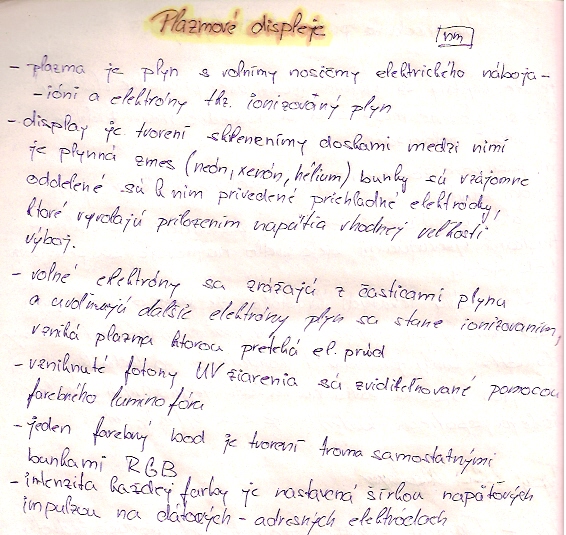 Plazmové displeje
nm
- plazma je plyn s volnímy nosičmy elektrického náboja -
- ióni a elektróny tkz. ionizováný plyn
- display je tvorení sklenenímy doskami medzi nimi
je plynná zmes (neón, xenón, hélium) bunky sú vzájomne
oddelené sú k nim privedené priehladné elektródy,
ktoré vyvolajú priložením napätia vhodnej velkosti
výboj.
- volné elektróny sa zrážajú z časticami plynu
a uvolnujú dalšie elektróny plyn sa stane ionizovaním,
vzniká plazma ktorou pretéká el. prúd
- vzniknuté fotony UV žiarenia sú zviditelňované pomocou
farebného luminofóru
- jeden farebný bod je tvorení troma samostatnými
bunkami RGB
- intenzita každej farby je nastavená širkou napäťových
impulzou na dátových - adresných elektródach